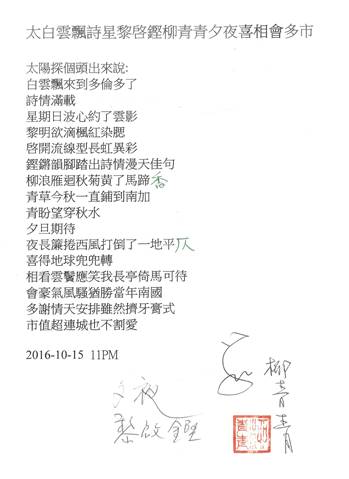 太白雲飄詩星黎啓鏗柳青青夕夜喜相會多市
太陽探個頭出來說:
白雲飄來到多倫多了
詩情滿載
星期日波心約了雲影
黎明欲滴楓紅染腮
啓開流線型長虹異彩
鏗鏘韻腳踏出詩情漫天佳句
柳浪雁迴秋菊黃了馬蹄香
青草今秋一直鋪到南加
青盼望穿秋水
夕旦期待
夜長簾捲西風打倒了一地平仄
喜得地球兜兜轉
相看雲鬢應笑我長亭倚馬可待
會豪氣風騷猶勝當年南國
多謝情天安排雖然擠牙膏式
市值超連城也不割愛
2016-10-15 11PM
柳青青
夕夜
黎啟鏗